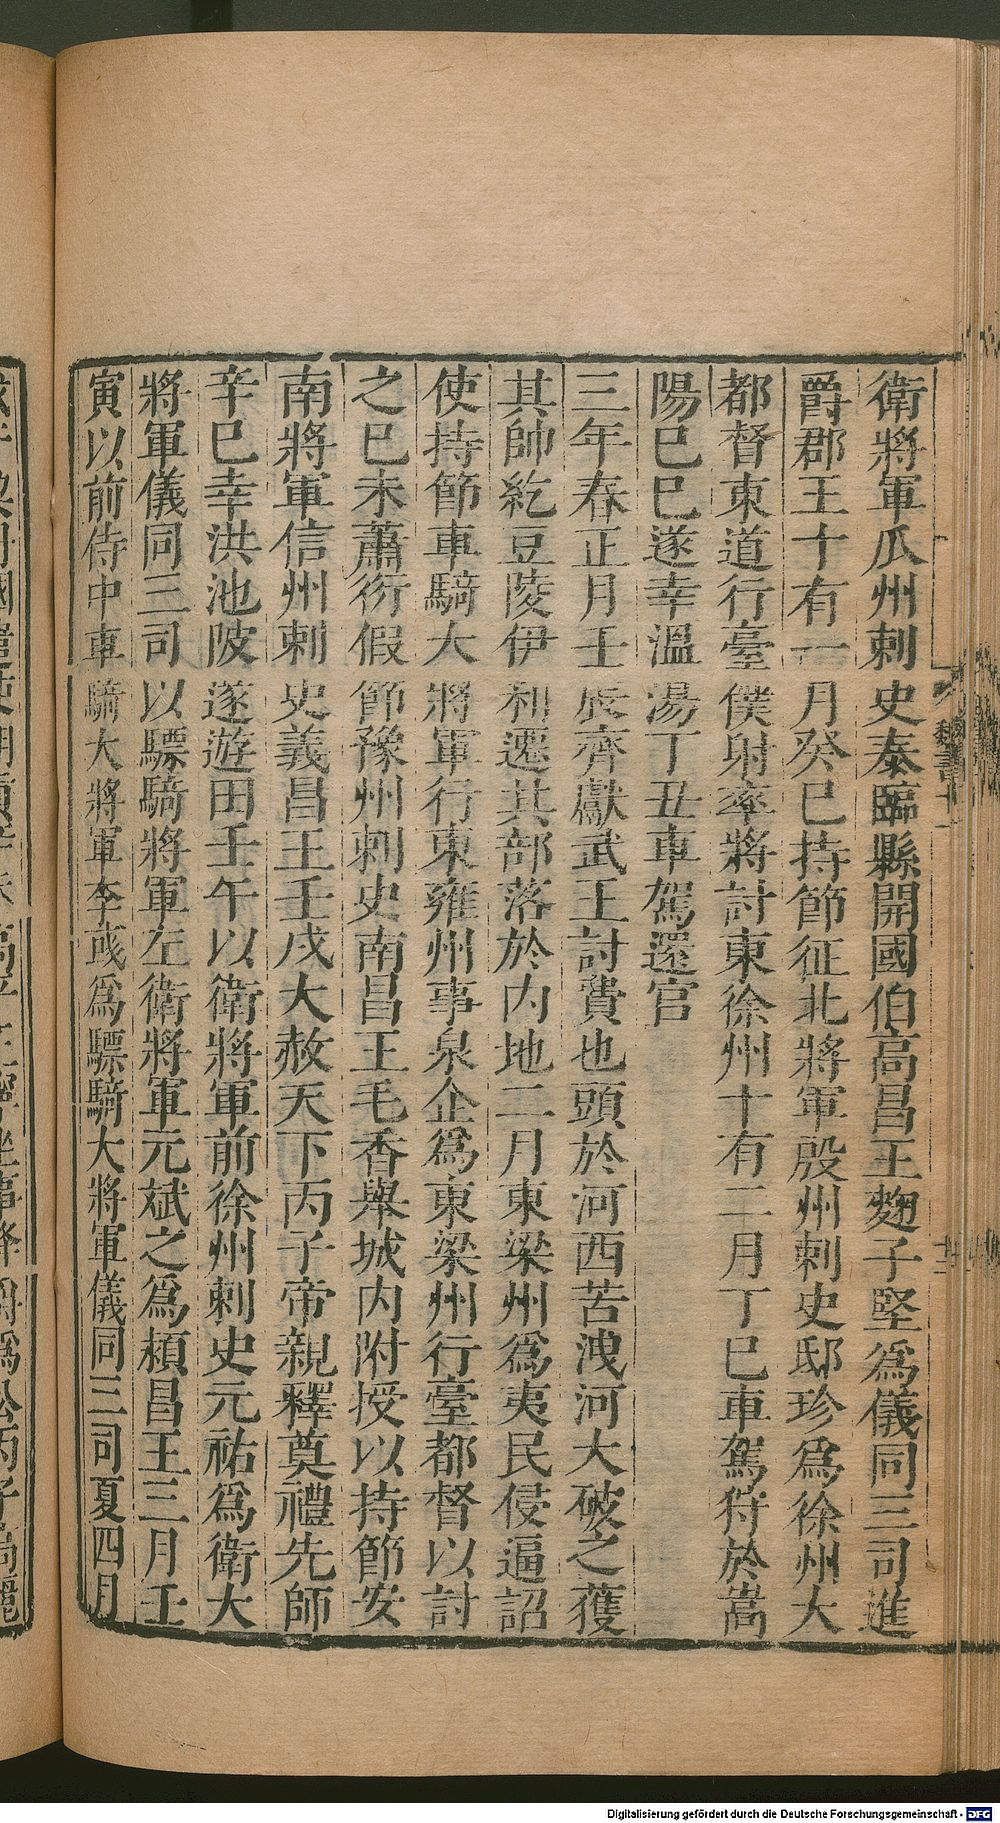 衛將軍瓜州刺史泰臨縣開國伯高昌王麴子堅爲儀同三司進
爵郡王十有一月癸巳持節征北將軍殷州刺史邸珍爲徐州大
都督東道行臺僕射率將討東徐州十有二月丁巳車駕狩於嵩
陽己巳遂幸溫湯丁丑車駕還宮
三年春正月壬辰齊獻武王討費也頭於河西苦洩河大破之獲
其帥紇豆陵伊利遷其部落於內地二月東梁州爲夷民侵逼詔
使持節車騎大將軍行東雍州事泉企爲東梁州行臺都督以討
之己未蕭衍假節豫州刺史南昌王毛香舉城內附授以持節安
南將軍信州刺史義昌王壬戌大赦天下丙子帝親釋奠禮先師
辛巳幸洪池陂遂遊田壬午以衛將軍前徐州刺史元祐爲衛大
將軍儀同三司以驃騎將軍左衛將軍元斌之爲潁昌王三月壬
寅以前侍中車騎大將軍李彧爲驃騎大將軍儀同三司夏四月
魏書十一
Digitalisierung gefördert durch die Deutsche Forschungsgemeinschaft - DFG